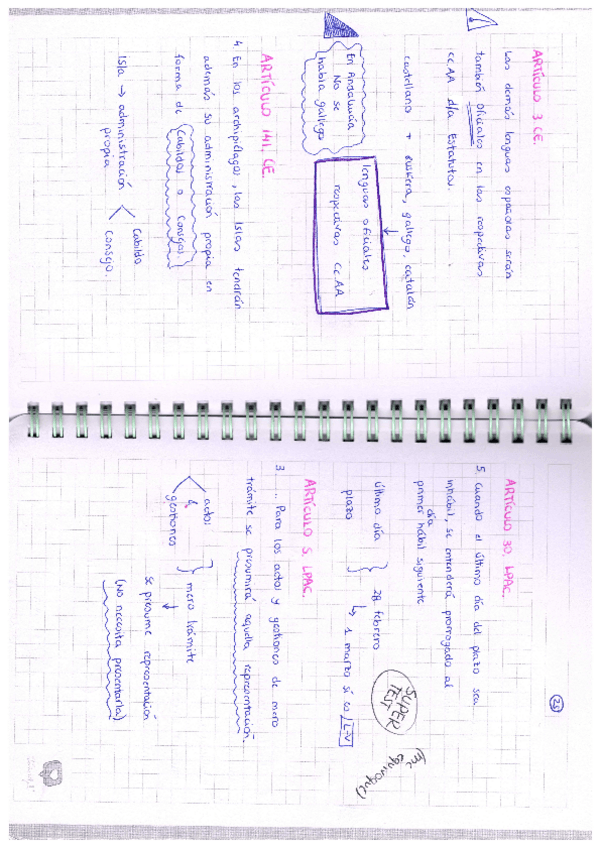 ARTÍCULO 3 CE.
Las demás lenguas españolas serán
también oficiales en las respectivas
CCAA d/a Estatutos.
castellano + euskera, gallego, catalán
En Andalucía
No se
habla gallego
lenguas oficiales
respectivas CCAA
ARTÍCULO 141. CE.
4. En los archipiélagos, las Islas tendrán
además su administración propia en
forma de Cabildos o Consejos.
Isla → administración
propia
Cabildo
Consejo.
25
ARTÍCULO 30. LPAC.
5. Cuando el último día del plazo sea
inhábil, se entenderá prorrogado al
primer día hábil siguiente
último día
plazo
28 febrero
↳ 1 marzo si es L-V
SUPER
TEST
(me
equivoqué)
ARTÍCULO 5. LPAC.
3 .... Para los actos y gestiones de mero
trámite se presumirá aquella representación.
actos
&
gestiones
mero trámite
se presume representación
(No necesita presentarla)